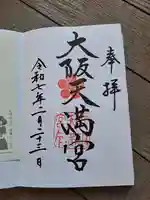 奉拝
大阪天満宮
令和七年二月二十三日